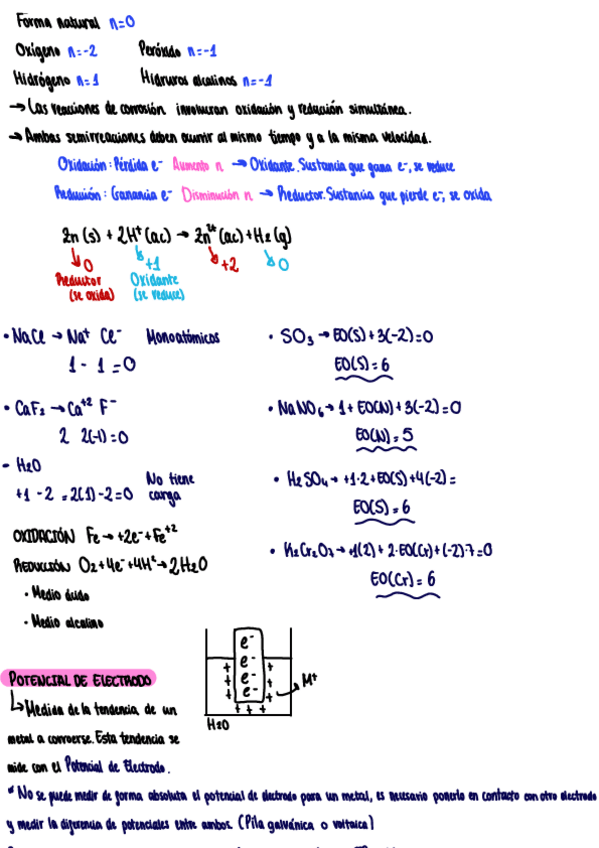 Forma natural n=0
Oxígeno n=-2 Peróxido n=-1
Hidrógeno n=1 Hidruros alcalinos n=-1
→ Las reacciones de corrosión involucran oxidación y reducción simultánea.
→ Ambas semirreacciones deben ocurrir al mismo tiempo y a la misma velocidad.
Oxidación: Pérdida e⁻ Aumento n → Oxidante. Sustancia que gana e⁻, se reduce
Reducción: Ganancia e⁻ Disminución n → Reductor. Sustancia que pierde e⁻, se oxida
Zn (s) + 2H⁺ (ac) → Zn²⁺ (ac) + H₂ (g)
0 +1 +2 0
Reductor Oxidante
(se oxida) (se reduce)
• NaCl → Na⁺ Cl⁻ Monoatómicos
1 - 1 = 0
• SO₃ → EO(S) + 3(-2) = 0
EO(S) = 6
• CaF₂ → Ca⁺² F⁻
2 2(-1) = 0
• NaNO₆ → 1 + EO(N) + 3(-2) = 0
EO(N) = 5
- H₂O
+1 -2 = 2(1) - 2 = 0 No tiene carga
• H₂SO₄ → +1·2 + EO(S) + 4(-2) =
EO(S) = 6
OXIDACIÓN Fe → +2e⁻ + Fe⁺²
REDUCCIÓN O₂ + 4e⁻ + 4H⁺ → 2H₂O
• Medio ácido
• Medio alcalino
• K₂Cr₂O₇ → +1(2) + 2·EO(Cr) + (-2)·7 = 0
EO(Cr) = 6
POTENCIAL DE ELECTRODO
↳ Medida de la tendencia de un
metal a corroerse. Esta tendencia se
mide con el Potencial de Electrodo.
e⁻
+ e⁻ +
+ e⁻ +
+ e⁻ +
+ + +
M⁺
H₂O
* No se puede medir de forma absoluta el potencial de electrodo para un metal, es necesario ponerlo en contacto con otro electrodo
y medir la diferencia de potenciales entre ambos. (Pila galvánica o voltaica)